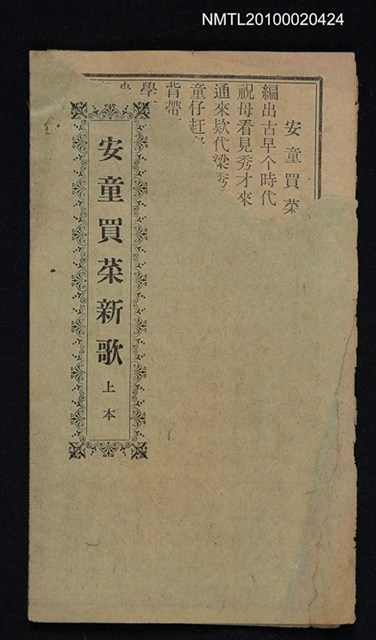 NMTL20100020424
安童買菜
編出古早个時代
祝母看見秀才來
通來欵代梁秀
童仔赶
背帶
學
安童買菜新歌
上本